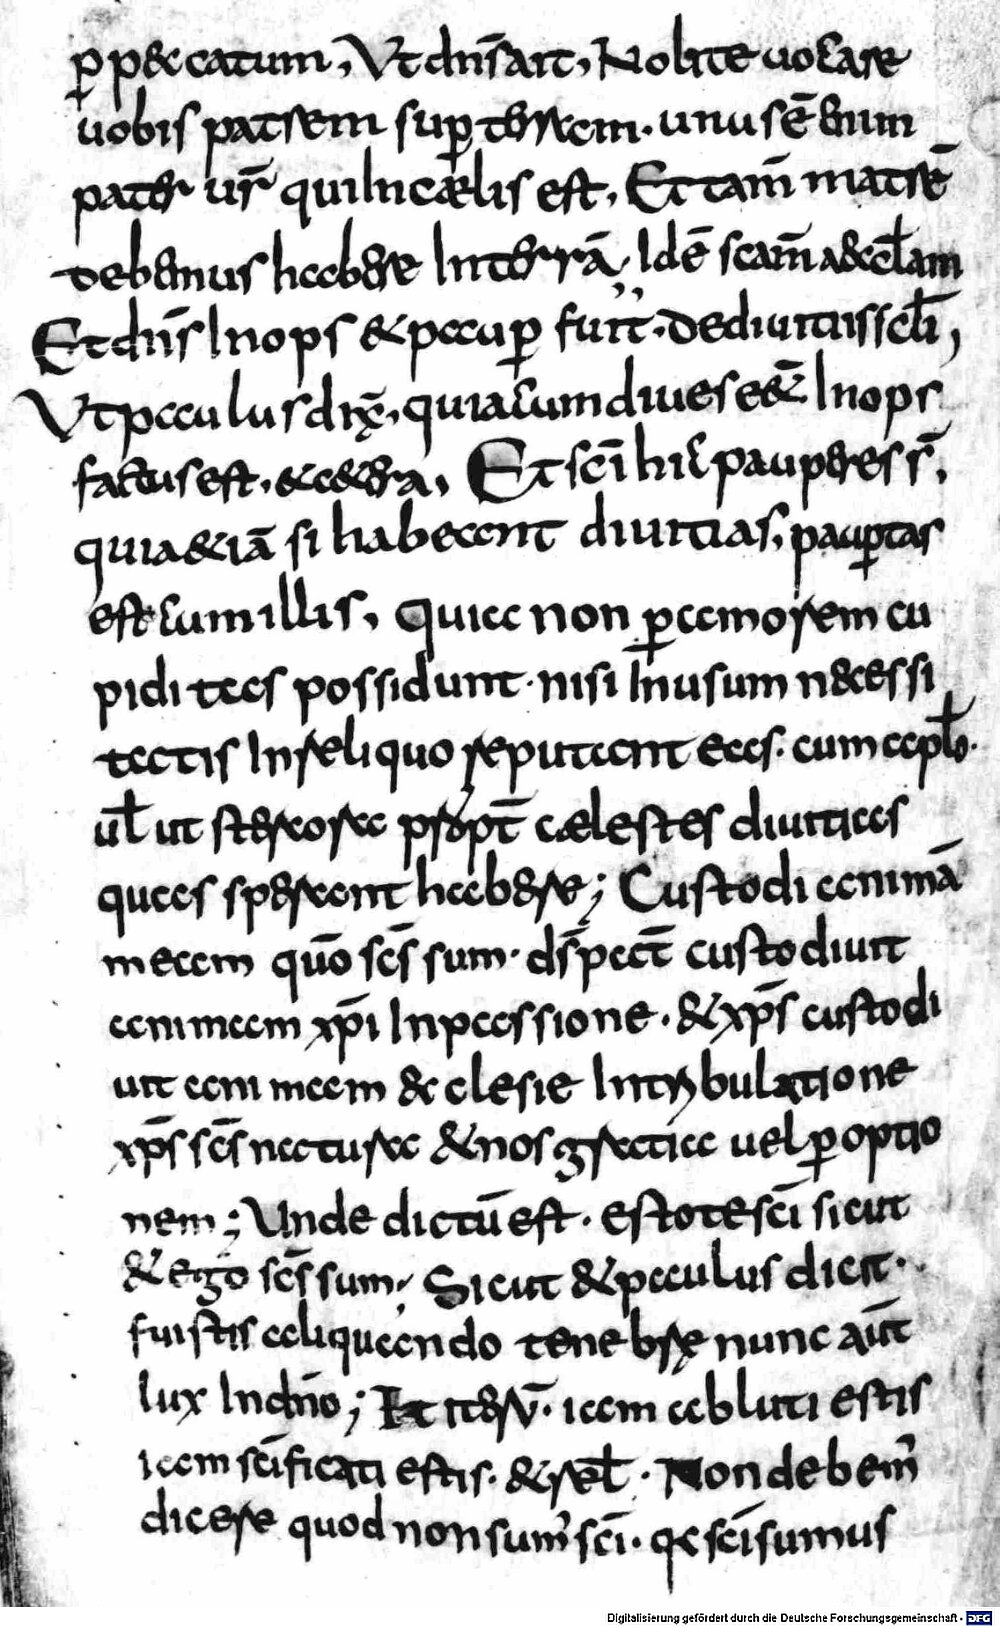 ꝑ p&catum, Ut dn̄s ait, Nolite uocare
uobis patrem suꝑ terram. unus ē enim
pater ur̄ qui In cælis est, Et tam̄ matrē
debemus habere In terrā, Idē scam̄ aeccl̄am
Et dn̄s Inops & pauꝑ fuit. dediuitiis scl̄i,
Ut paulus dix̄, quia cum diues e&̄ Inops
factus est, & c&era, Et sc̄i hic pauperes s̄,
quia &iā si haberent diuitias, pauꝑtas
est cum illis, Quia non ꝑ amorem cu
piditas possidunt. nisi In usum necessi
tatis In reliquo reputant eas. cum aplo̅.
ul̄ ut stercora propt̄ cælestes diuitias
quas sperant habere; Custodi animā
meam quō sc̄s sum. ds̄ pat̄ custodiuit
animam xp̄i In passione. & xp̄s custodi
uit animam &clesie In tribulatione
xp̄s sc̄s natura & nos gratia uel ꝑ optio
nem; Unde dictū est. estote sc̄i sicut
& ego sc̄s sum, Sicut & paulus dicit.
fuistis aliquando tenebrę nunc aūt
lux In dn̄o; Et iterū. iam abluti estis
iam sc̄ificati estis. & rel̄. Non debem'
dicere quod non sum' sc̄i. qe sc̄i sumus
Digitalisierung gefördert durch die Deutsche Forschungsgemeinschaft - DFG